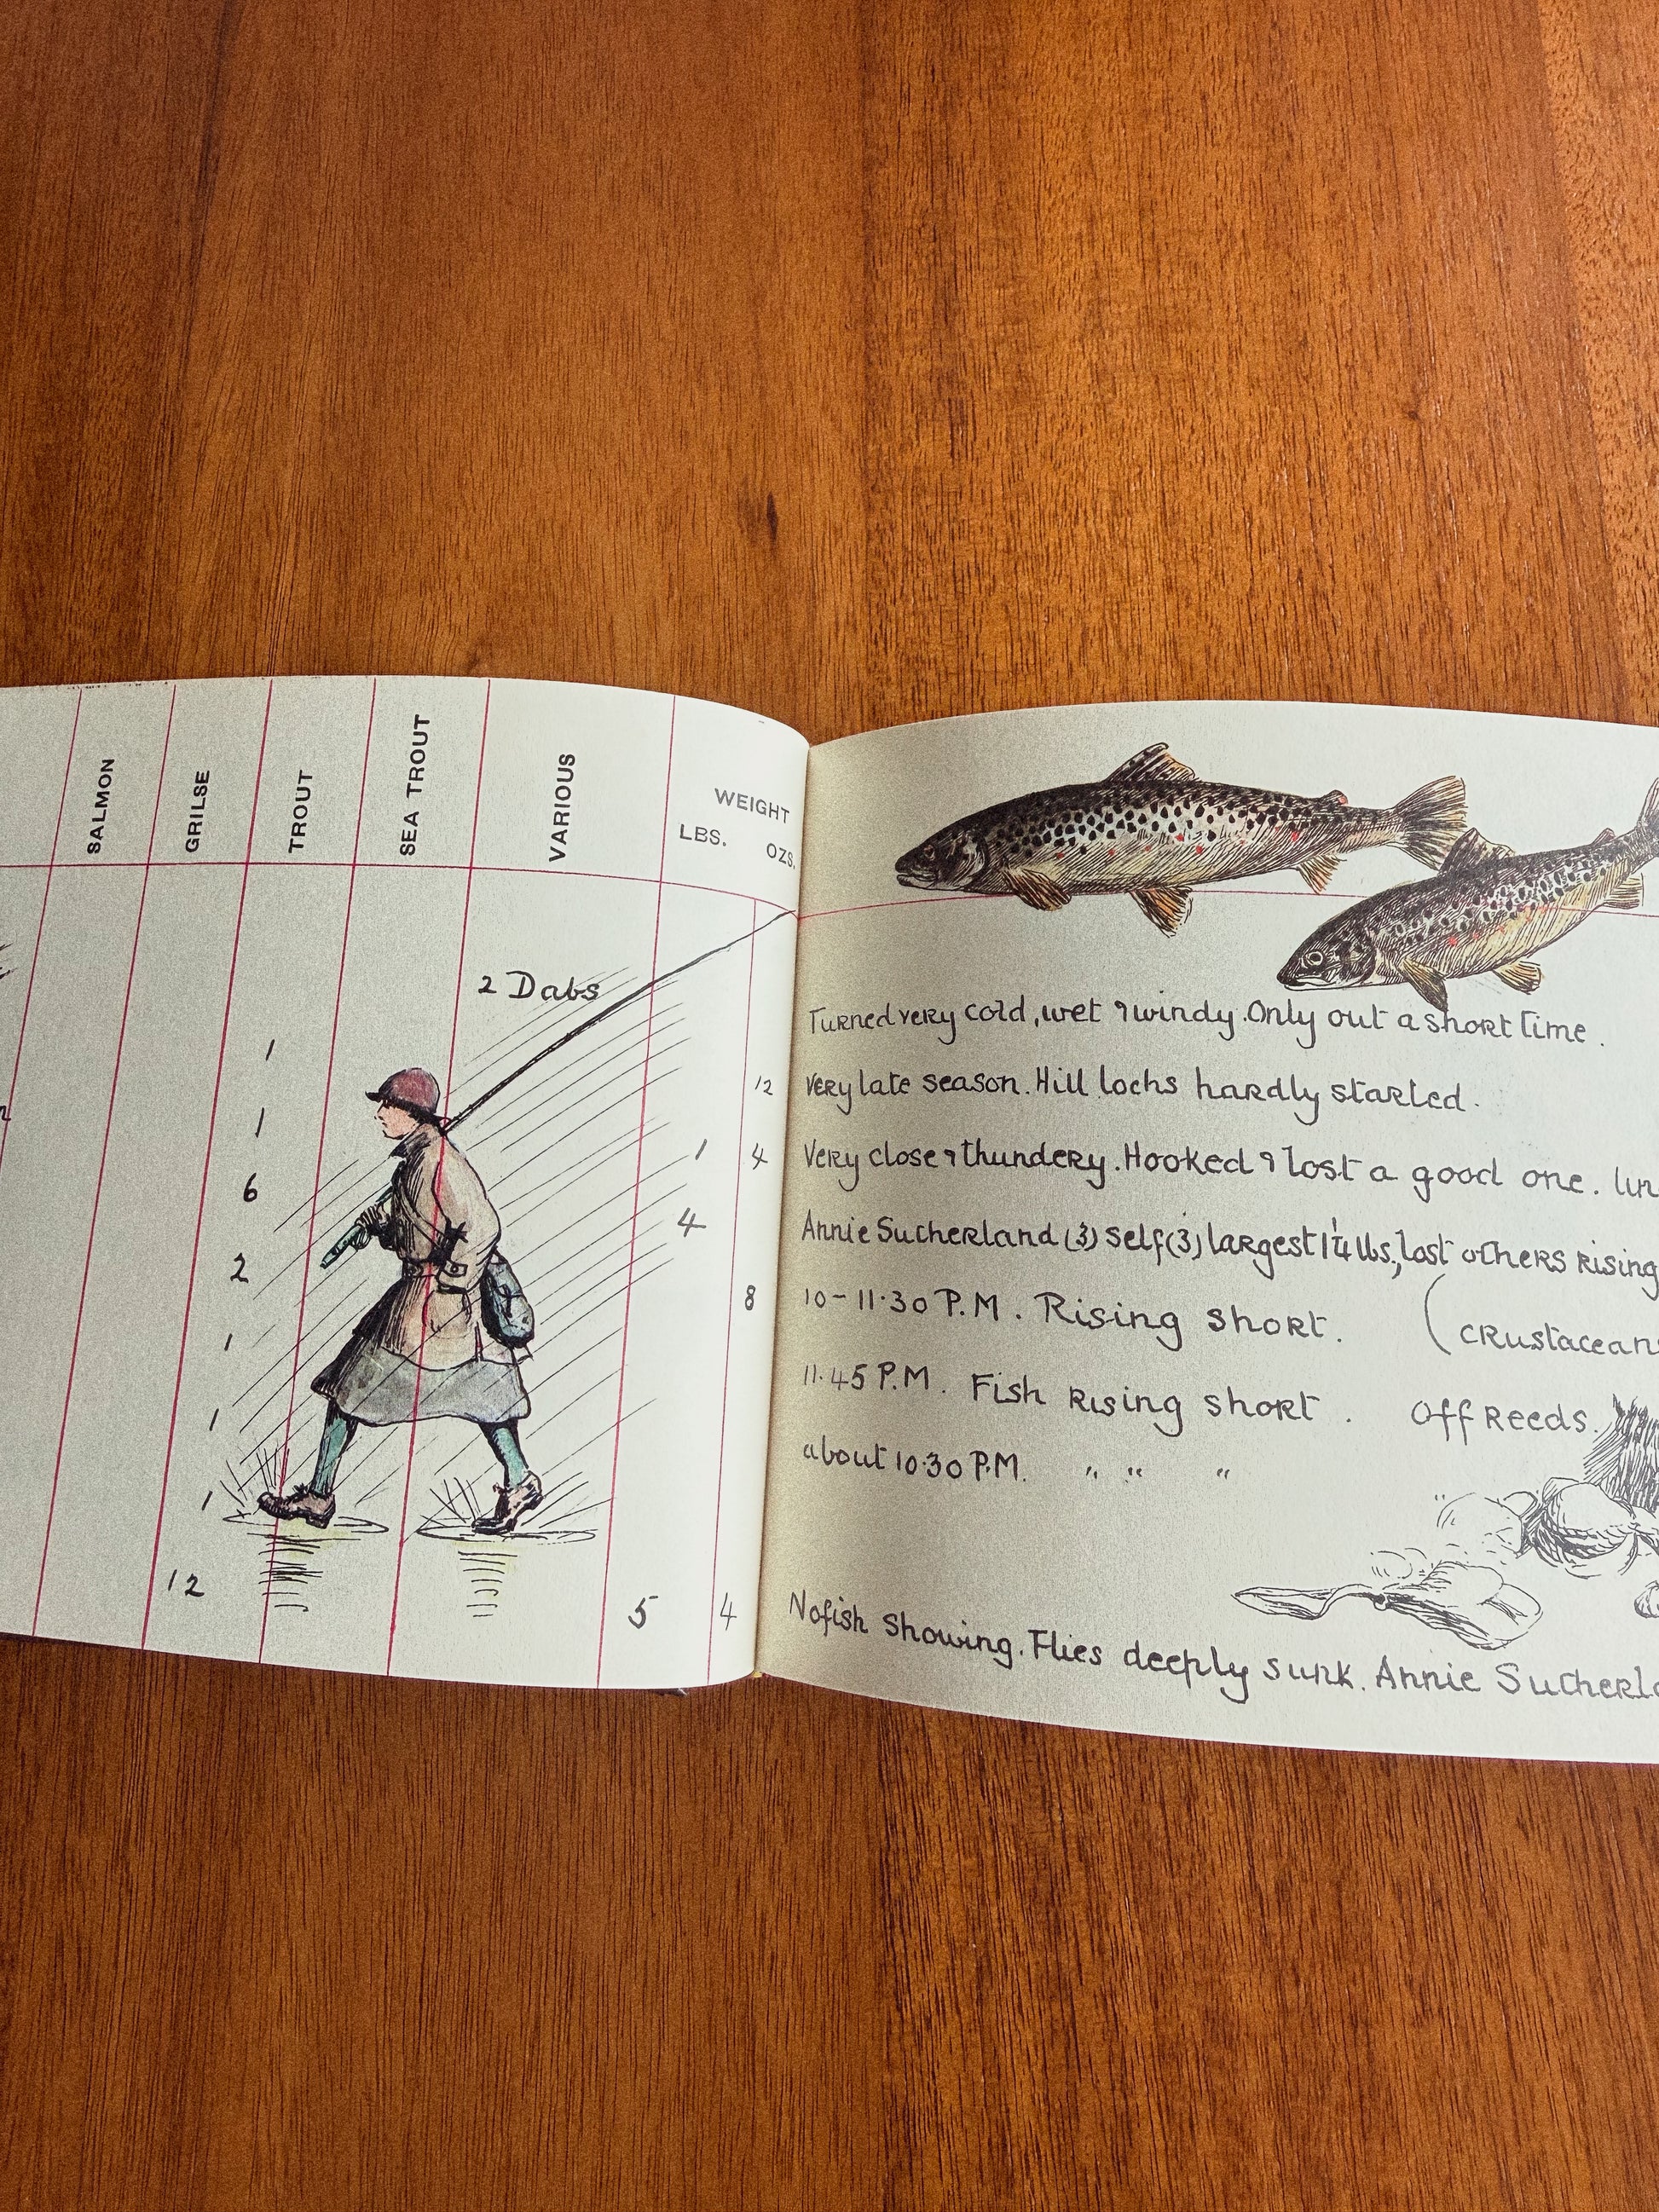 SALMON GRILSE TROUT SEA TROUT VARIOUS WEIGHT
LBS. OZS.
2 Dabs
1
1 12
6 1 4
2 4
1 8
1
1
12 5 4
Turned very cold, wet & windy. Only out a short time.
Very late season. Hill lochs hardly started.
Very close & thundery. Hooked & lost a good one.
Annie Sutherland (3) Self (3) largest 1¼ lbs., lost others rising
10-11.30 P.M. Rising short. (crustacean
11.45 P.M. Fish rising short. Off Reeds.
about 10.30 P.M. " " "
No fish showing. Flies deeply sunk. Annie Sutherla